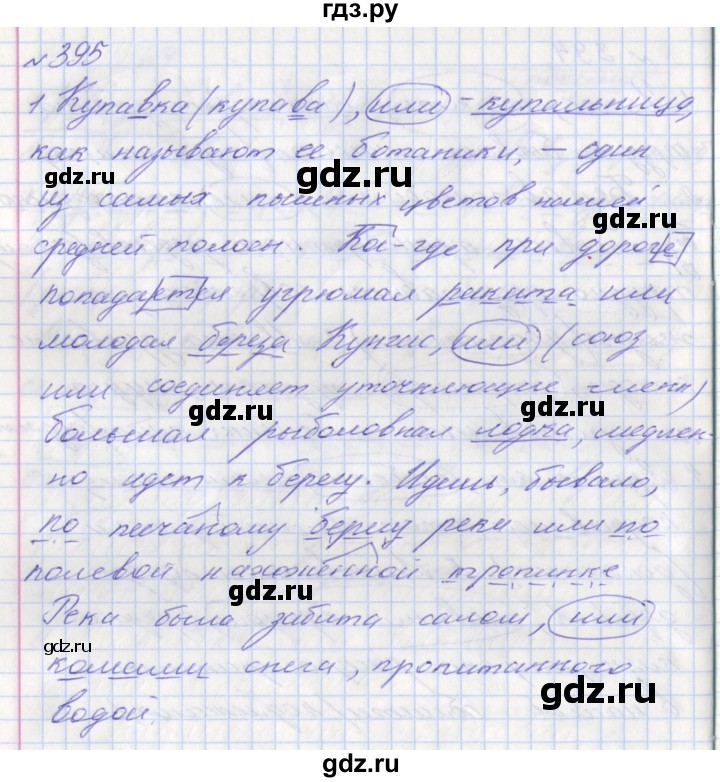 гдз.ру
№395
1 Купавка (купава), или - купальница,
как называют ее ботаники, - один
gdz.ru
gdz.ru
из самых пышных цветов нашей
gdz.ru
средней полосы. Кое-где при дороге
попадается угрюмая ракита или
молодая береза Кунгас, или (союз
или соединяет уточняющие члены)
gdz.ru
gdz.ru
большая рыболовная лодка, медлен-
но идет к берегу. Идешь, бывало,
по песчаному берегу реки или по
полевой нахоженной тропинке
gdz.ru
Река была забита салом, или
gdz.ru
комами снега, пропитанного
gdz.ru
водой.
gdz.ru
gdz.ru